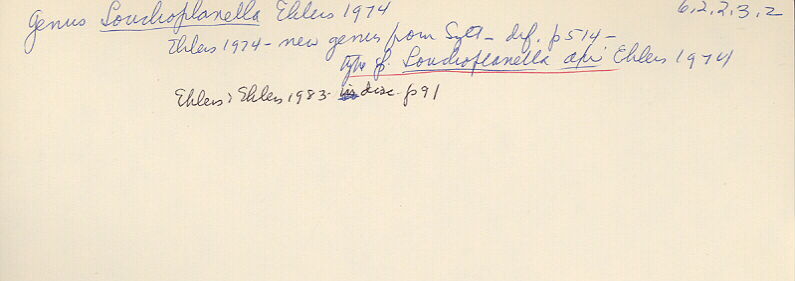 Genus Londroplanella Ehlers 1974 6.2.2.3.2
Ehlers 1974 - new genus from Sylt - def. p514 -
type sp. Londroplanella apri Ehlers 1974
Ehlers & Ehlers 1983 - disc p91